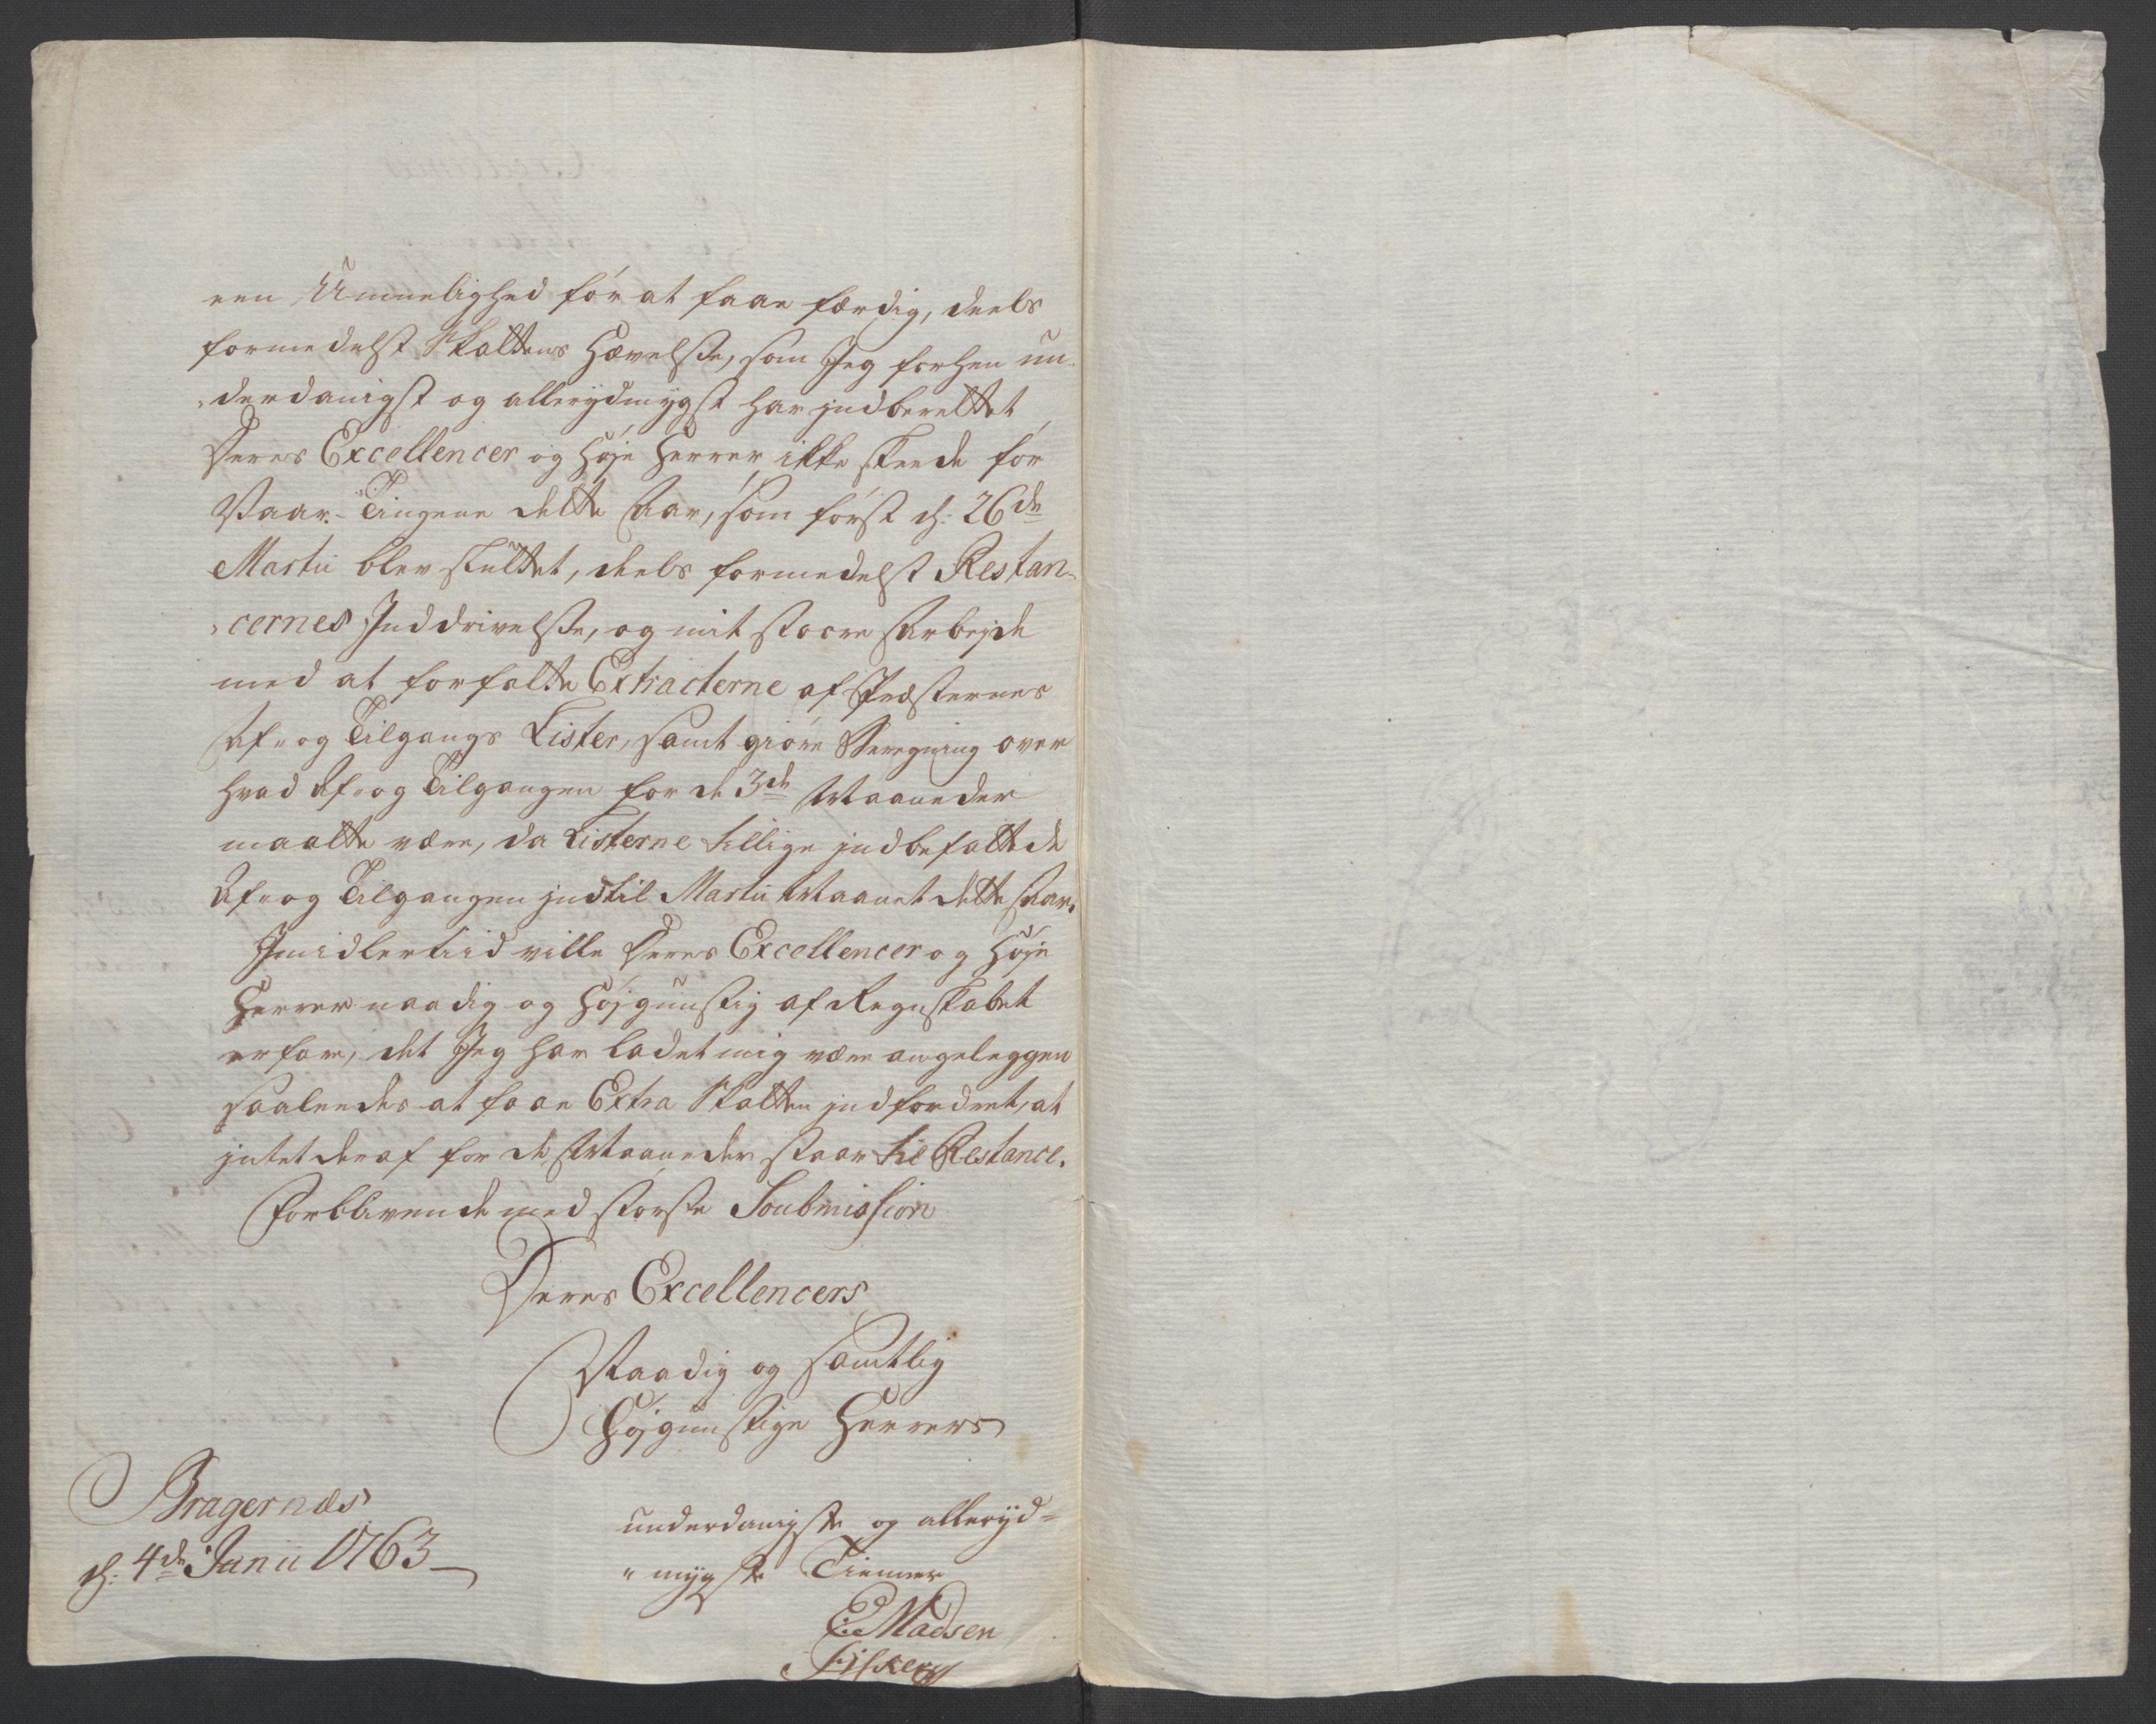 een Umuelighed for at faae færdig, deels
formedelst Skattens Hævelse, som Jeg forhen un-
„derdanigst og allerydmygst har indberettet
Deres Excellencer og Høje Herrer, ikke skeede før
Vaar-Tingene dette Aar, som først d: 26de
Martii blev sluttet, deels formedelst Restan-
„cernes Inddrivelse, og mit stoere Arbejde
med at forfatte Extracterne af Præsternes
Af- og Tilgangs Lister, samt giøre Beregning over
hvad Af- og Tilgangen for de 3de Maaneder
maatte være, da Listerne tillige indbefattede
Af- og Tilgangen indtil Martii Maanet dette Aar.
Imidlertiid ville Deres Excellencer og Høje
Herrer naadig og Højgunstig af Regnskabet
erfare, det Jeg har ladet mig være angeleggen
saaleedes at faae Extra Skatten indfordret, at
intet deraf for de Maaneder staar til Restance.
Forblivende med største Soubmission
Deres Excellencers
Naadig og samtlig
Højgunstige Herrers
Bragernæs
d: 4de Junii 1763
underdanigste og alleryd-
„mygste Tienner
E: Madsen
Fisker